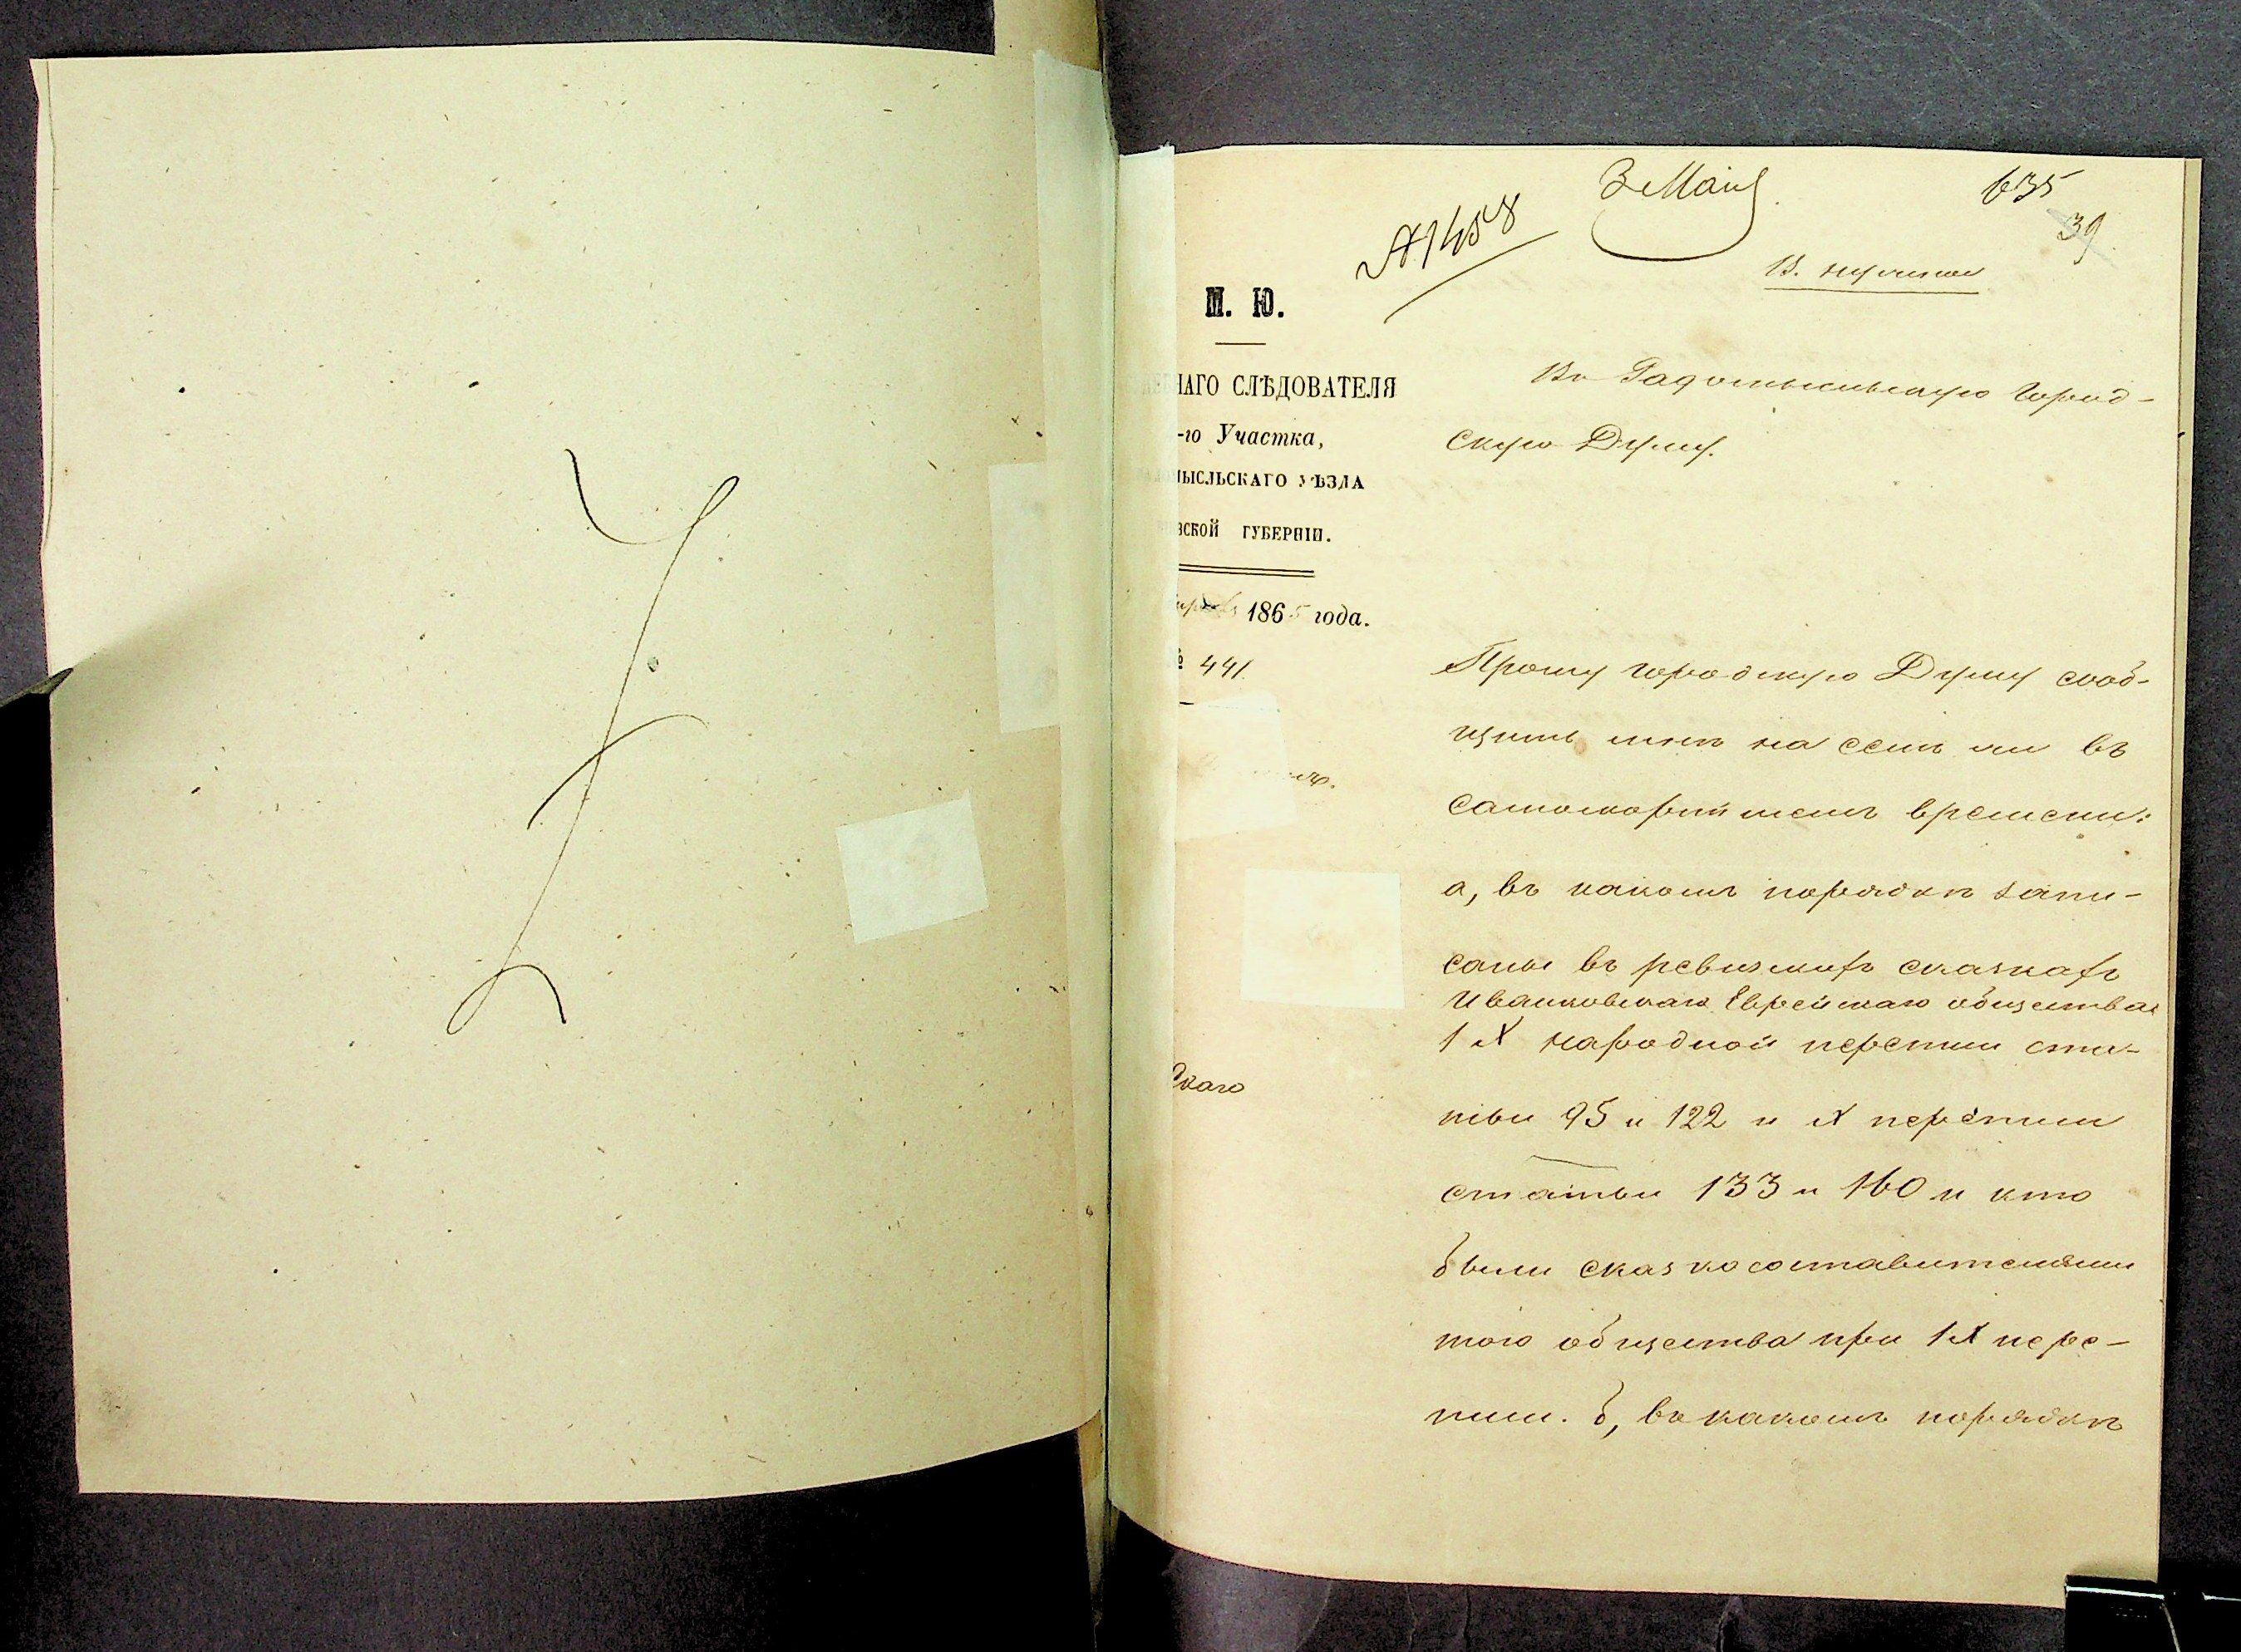 3 Мая
635
39
№1458
В. нужное
М. Ю.
НАГО СЛѢДОВАТЕЛЯ
-го Участка,
МЫСЛЬСКАГО УѢЗДА
ВСКОЙ ГУБЕРНІИ.
1865 года.
№ 441
Въ Радомысльскую Город-
скую Думу.
Прошу городскую Думу сооб-
щить мнѣ на семъ же въ
самоскорѣйшемъ времени:
а, въ какомъ порядкѣ запи-
саны въ ревизкихъ сказкахъ
Иванковскаго Еврейскаго общества
IX народной переписи ста-
тьи 95 и 122 и X переписи
статьи 133 и 160 и кто
были сказкосоставителями
того общества при IX пере-
писи. б, въ какомъ порядкѣ
скаго